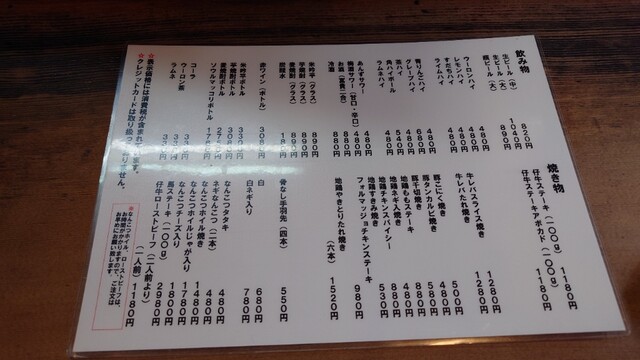 飲み物
生ビール（中） 820円
生ビール（大） 1040円
瓶ビール（大） 890円
ウーロンハイ 480円
レモンハイ 480円
すだちハイ 480円
ライムハイ 480円
青りんごハイ 480円
グレープハイ 680円
茶ハイ 480円
角ハイボール 540円
ラムネハイ 480円
あんずサワー 480円
梅酒サワー（甘口・辛口） 480円
お酒（富貴二合） 880円
冷酒 880円
米炸平（グラス） 890円
芋焼酎（グラス） 890円
麦焼酎（グラス） 890円
炭酸水 180円
赤ワイン（ボトル） 3080円
米炸平ボトル 3300円
芋焼酎ボトル 3080円
麦焼酎ボトル 2750円
ソウルマッコリボトル
コーラ
ウーロン茶
ラムネ
☆表示価格には消費税が含まれております。
☆クレジットカードは取り扱っておりません。
焼き物
仔牛ステーキ（100g） 1180円
仔牛ステーキアボカド（100g） 1180円
牛レバスライス焼き 1280円
牛レバたれ焼き 1280円
豚こにく焼き 500円
豚タンカルビ焼き 580円
豚千切焼き 480円
地鶏ももステーキ 880円
地鶏ネギ入焼き 880円
地鶏チキンスパイシー 880円
地鶏すきみ焼き 530円
フォルマッジョチキンステーキ 980円
地鶏やきとりたれ焼き（六本） 1520円
骨なし手羽先（四本） 550円
白 680円
白ネギ入り 780円
なんこつタタキ 480円
ネギなんこつ（二本） 480円
なんこつホイル焼き 1480円
なんこつホイルじゃが入り 1780円
なんこつチーズ入り 1780円
馬ステーキ（100g） 1800円
仔牛ローストビーフ（二人前より） 2980円
（一人前） 1180円
☆なんこつホイル、ローストビーフは、
お時間がかかりますので、ご注文は
お早めにお願い致します。